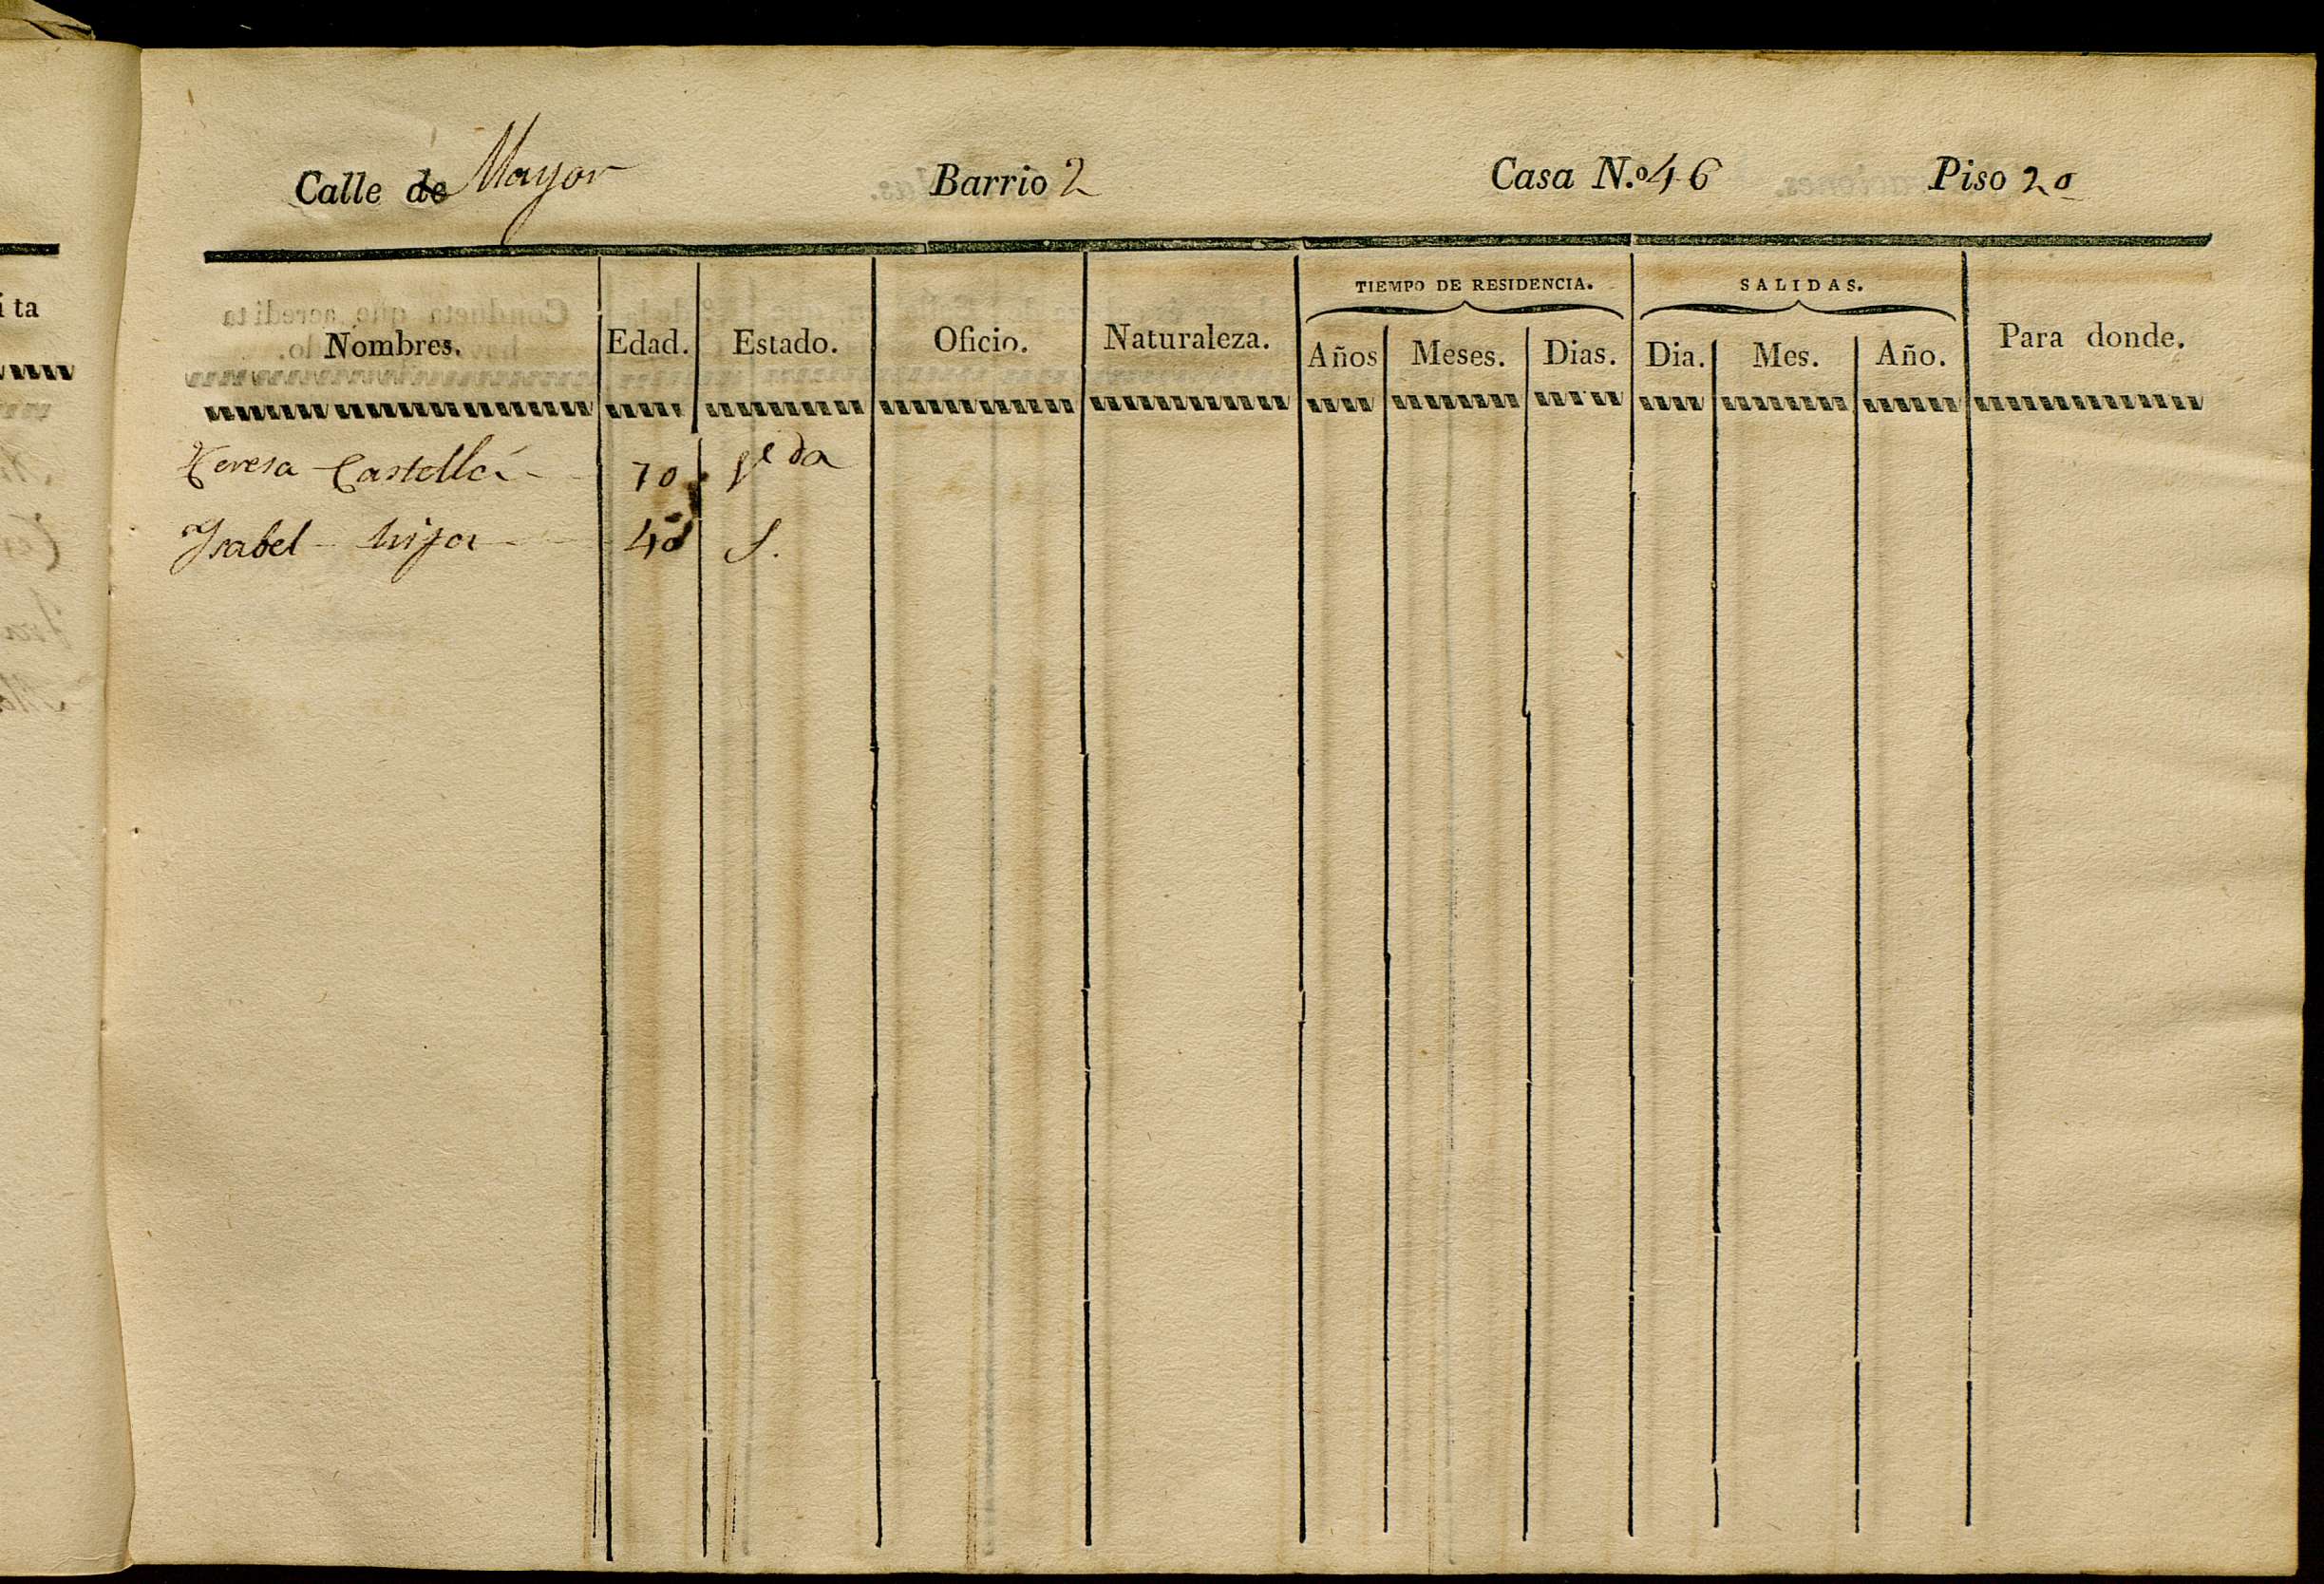 Calle de Mayor Barrio 2 Casa N.º 46 Piso 2º
TIEMPO DE RESIDENCIA. SALIDAS.
Nombres. Edad. Estado. Oficio. Naturaleza. Años Meses. Dias. Dia. Mes. Año. Para donde.
Teresa Castellá 70 Vda
Ysabel hija 40 S.